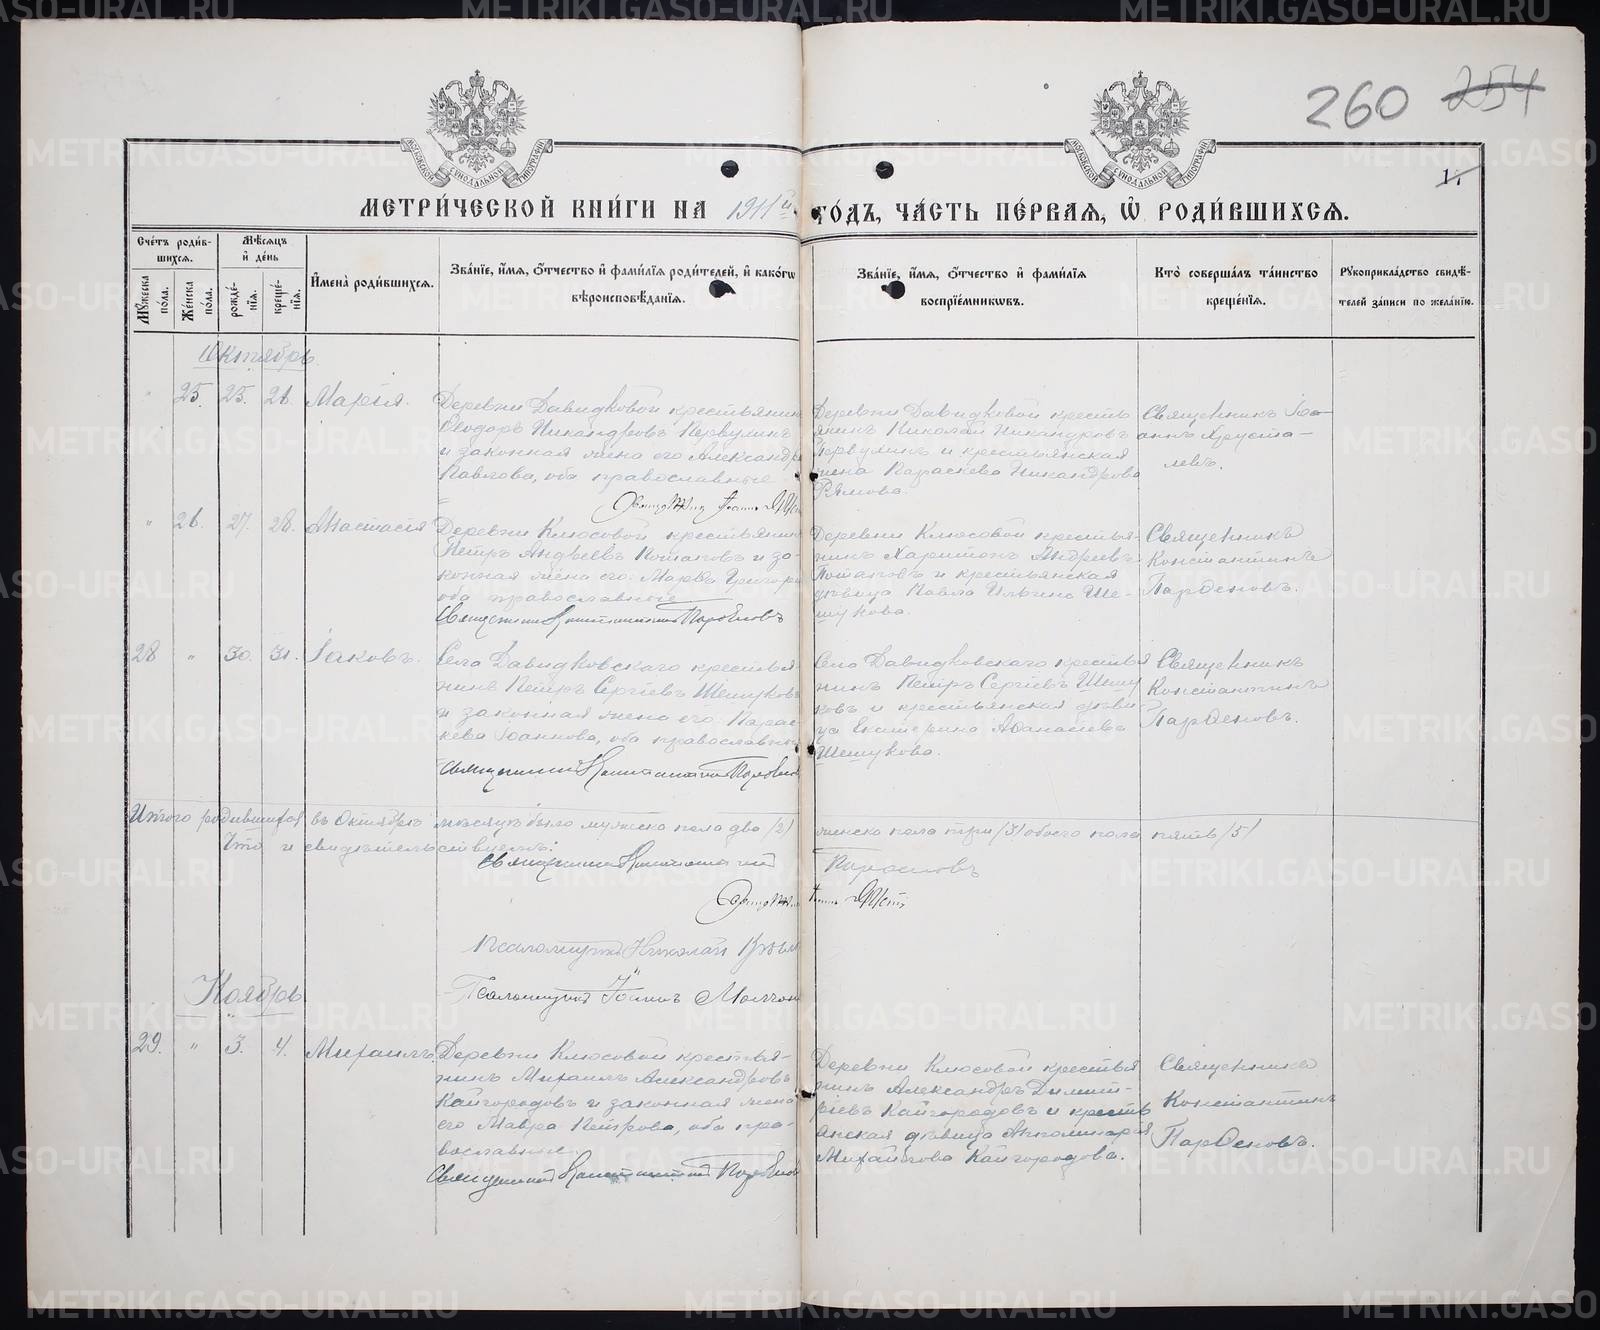 260 254
МОСКОВСКОЙ СИНОДАЛЬНОЙ ТИПОГРАФІИ
МОСКОВСКОЙ СИНОДАЛЬНОЙ ТИПОГРАФІИ
МЕТРИ́ЧЕСКОЙ КНИ́ГИ НА 1911й ГО́ДЪ, ЧА́СТЬ ПЕ́РВАЯ, Ѡ РОДИ́ВШИХСЯ.
Сче́тъ роди́в-
шихся.
Мѣ́сяцъ
и́ де́нь
Мꙋжеска по́ла.
Же́нска по́ла.
рожде́-
нїя.
креще́-
нїя.
И҆мена̀ роди́вшихся.
Зва́нїе, и҆́мя, ѻ҆́тчество и҆ фами́лїя роди́телей, и҆ како́гѡ
вѣроисповѣ́данїя.
Зва́нїе, и҆́мя, ѻ҆́тчество и҆ фами́лїя
воспрїе́мникѡвъ.
Кто̀ соверша́лъ та́инство
креще́нїя.
Рꙋкоприкла́дство свидѣ́-
телей за́писи по жела́нїю.
Октябрь
" 25. 25. 26. Марія.
Деревни Давидковой крестьянинъ
Ѳеодоръ Никандровъ Первулинъ
и законная жена его Александра
Павлова, оба православные
Деревни Давидковой кресть
янинъ Николай Никандровъ
Первулинъ и крестьянская
жена Параскева Никандрова
Священникъ Іоа-
ннъ Хруста-
левъ.
" 26. 27. 28. Анастасія
Деревни Клюсовой крестьянинъ
Петръ Андреевъ Потаповъ и за-
конная жена его Марѳа Григорь
оба православные
Священникъ Константинъ Парѳеновъ
Деревни Клюсовой крестья-
нинъ Харитонъ Андреевъ
Потаповъ и крестьянская
дѣвица Павла Ильина Ше-
шукова.
Священникъ
Константинъ
Парѳеновъ.
28 " 30. 31. Іаковъ.
Села Давидковскаго крестья
нинъ Петръ Сергіевъ Шешуковъ
и законная жена его Парас-
кева Іоаннова, оба православные
Священникъ Константинъ Парѳеновъ
Село Давидковскаго крестья
нинъ Петръ Сергіевъ Шешу
ковъ и крестьянская дѣви-
ца Екатерина Аѳанасіева
Шешукова.
Священникъ
Константинъ
Парѳеновъ.
Итого родившихся въ Октябрѣ мѣсяцѣ было мужска пола два /2/ женска пола три /3/ обоего пола пять /5/
Что и свидѣтельствуемъ:
Священникъ Константинъ Парѳеновъ
Псаломщикъ Николай
Псаломщикъ Іоаннъ
Ноябрь
29. " 3. 4. Михаилъ.
Деревни Клюсовой крестья-
нинъ Михаилъ Александровъ
Кайгородовъ и законная жена
его Мавра Петрова, оба пра-
вославные.
Священникъ Константинъ Парѳеновъ
Деревни Клюсовой крестья
нинъ Александръ Димит-
ріевъ Кайгородовъ и кресть
анская дѣвица Апполинарія
Михайлова Кайгородова.
Священникъ
Константинъ
Парѳеновъ.
METRIKI.GASO-URAL.RU